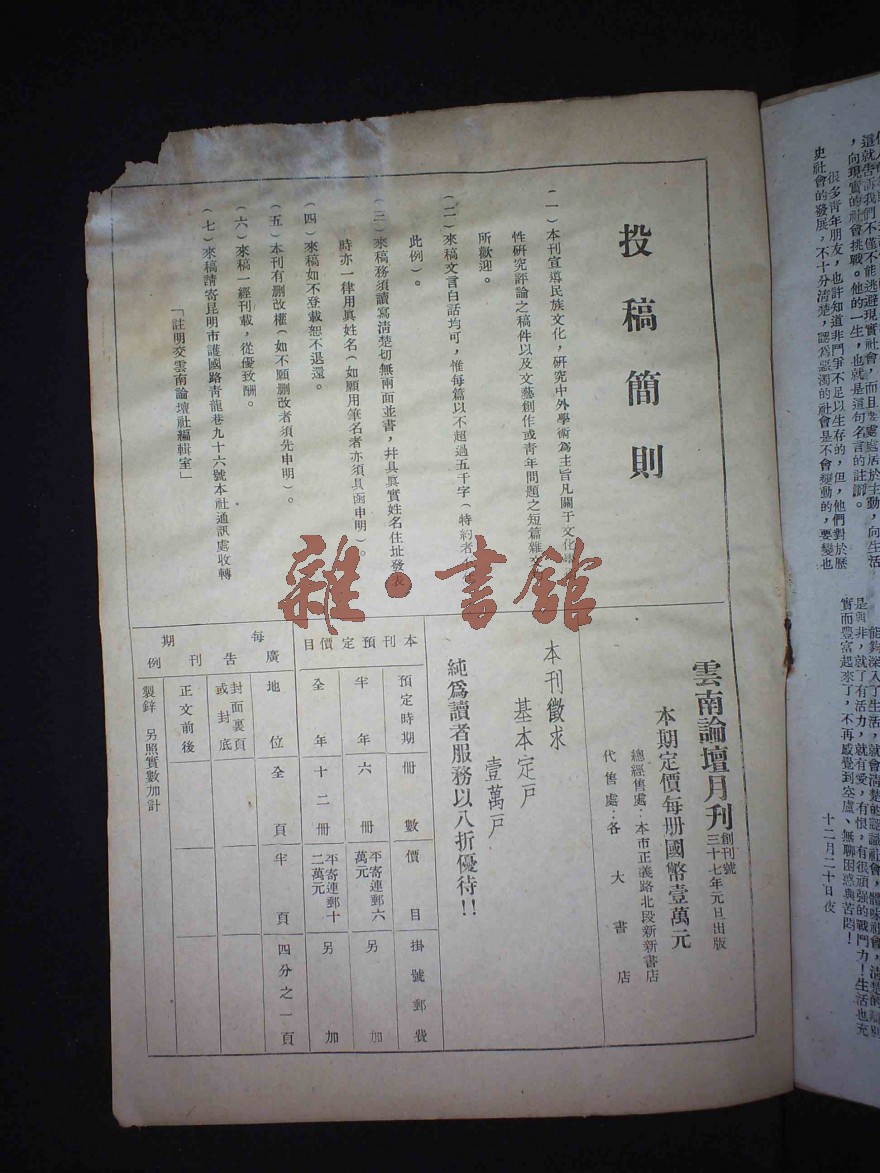 這就告訴我們不僅不能逃避現實社會，而且要處處居於主動，向生活
，向現實的社會挑戰。他的一生，也就是這句名言的註脚。
很多青年朋友，也許知道非鬥爭不足以生存的，但，他們對於歷
史社會的發展，不十分清楚，認為惡濁的社會是不會變動的，要變也
能夠深入了生活，就會清楚的認識社會，體味社會，清楚的辨別
是與非，就了有活力，就有愛，有恨，有很頑強的戰鬥力！生活也充
實而豐富起來了，不再感覺到空虛、無聊困惑與苦悶！
十二月二十日夜
投稿簡則
(一)本刊宣導民族文化，研究中外學術為主旨凡關于文化學
性研究評論之稿件以及文藝創作或青年問題之短篇雜文
所歡迎。
(二)來稿文言白話均可，惟每篇以不超過五千字(特約者
此例)。
(三)來稿務須讀寫清楚切無兩面並書，幷具眞實姓名住址發表
時亦一律用眞姓名(如願用筆名者亦須具函申明)。
(四)來稿如不登載恕不退還。
(五)本刊有删改權(如不願删改者須先申明)。
(六)來稿一經刊載，從優致酬。
(七)來稿請寄昆明市護國路靑龍巷九十六號本社通訊處收轉
「註明交雲南論壇社編輯室」
雜·書館
雲南論壇月刊
創刊號
三十七年元旦出版
本期定價每册國幣壹萬元
總經售處：本市正義路北段新新書店
代售處：各大書店
本刊徵求
基本定戶
壹萬戶
純爲讀者服務以八折優待！！
本刊預定價目
預定時期 冊數 價目 掛號郵費
半年 六冊 平寄連郵六萬元 另加
全年 十二冊 平寄連郵十二萬元 另加
每期廣告刊例
地位 全頁 半頁 四分之一頁
封面裏頁或封底
正文前後
製鋅 另照實數加計